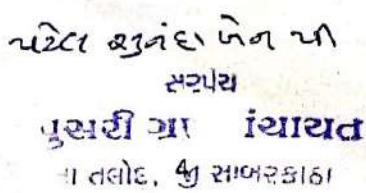 પટેલ સુનંદાબેન પી
સરપંચ
પુંસરી ગ્રા પંચાયત
તા તલોદ, જી સાબરકાંઠા